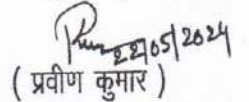 22/05/2024
( प्रवीण कुमार )